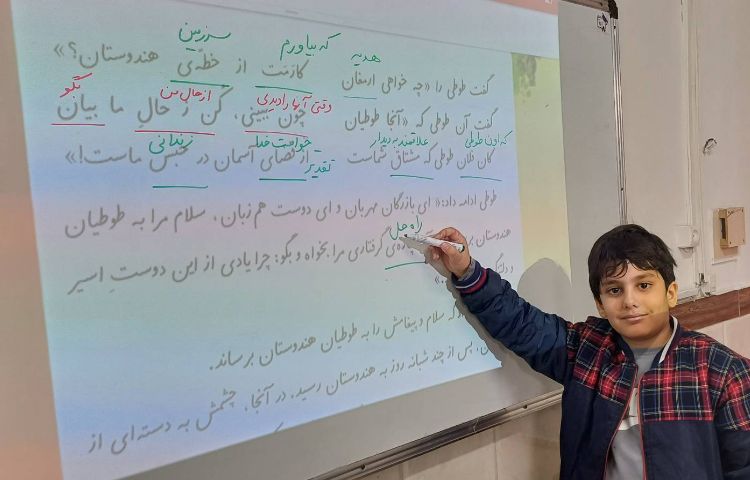 هدیه که بیاورم سرزمین
گفت طوطی را «چه خواهی ارمغان کارمَت از خطّه‌ی هندوستان؟»
وقتی آنها را دیدی از حال من بگو
گفت آن طوطی که «آنجا طوطیان چون ببینی، کن ز حال ما بیان
که اون طوطی علاقمند به دیدار خواست خدا تقدیر زندانی
کان فلان طوطی که مشتاق شماست از قضای آسمان در محبس ماست!»
طوطی ادامه داد: «ای بازرگان مهربان و ای دوست هم‌زبان، سلام مرا به طوطیان
راه حل
هندوستان گرفتاری مرا بخواه و بگو: چرا یادی از این دوستِ اسیر
که سلام و پیغامش را به طوطیان هندوستان برساند.
، پس از چند شبانه روز به هندوستان رسید. در آنجا، چشمش به دسته‌ای از